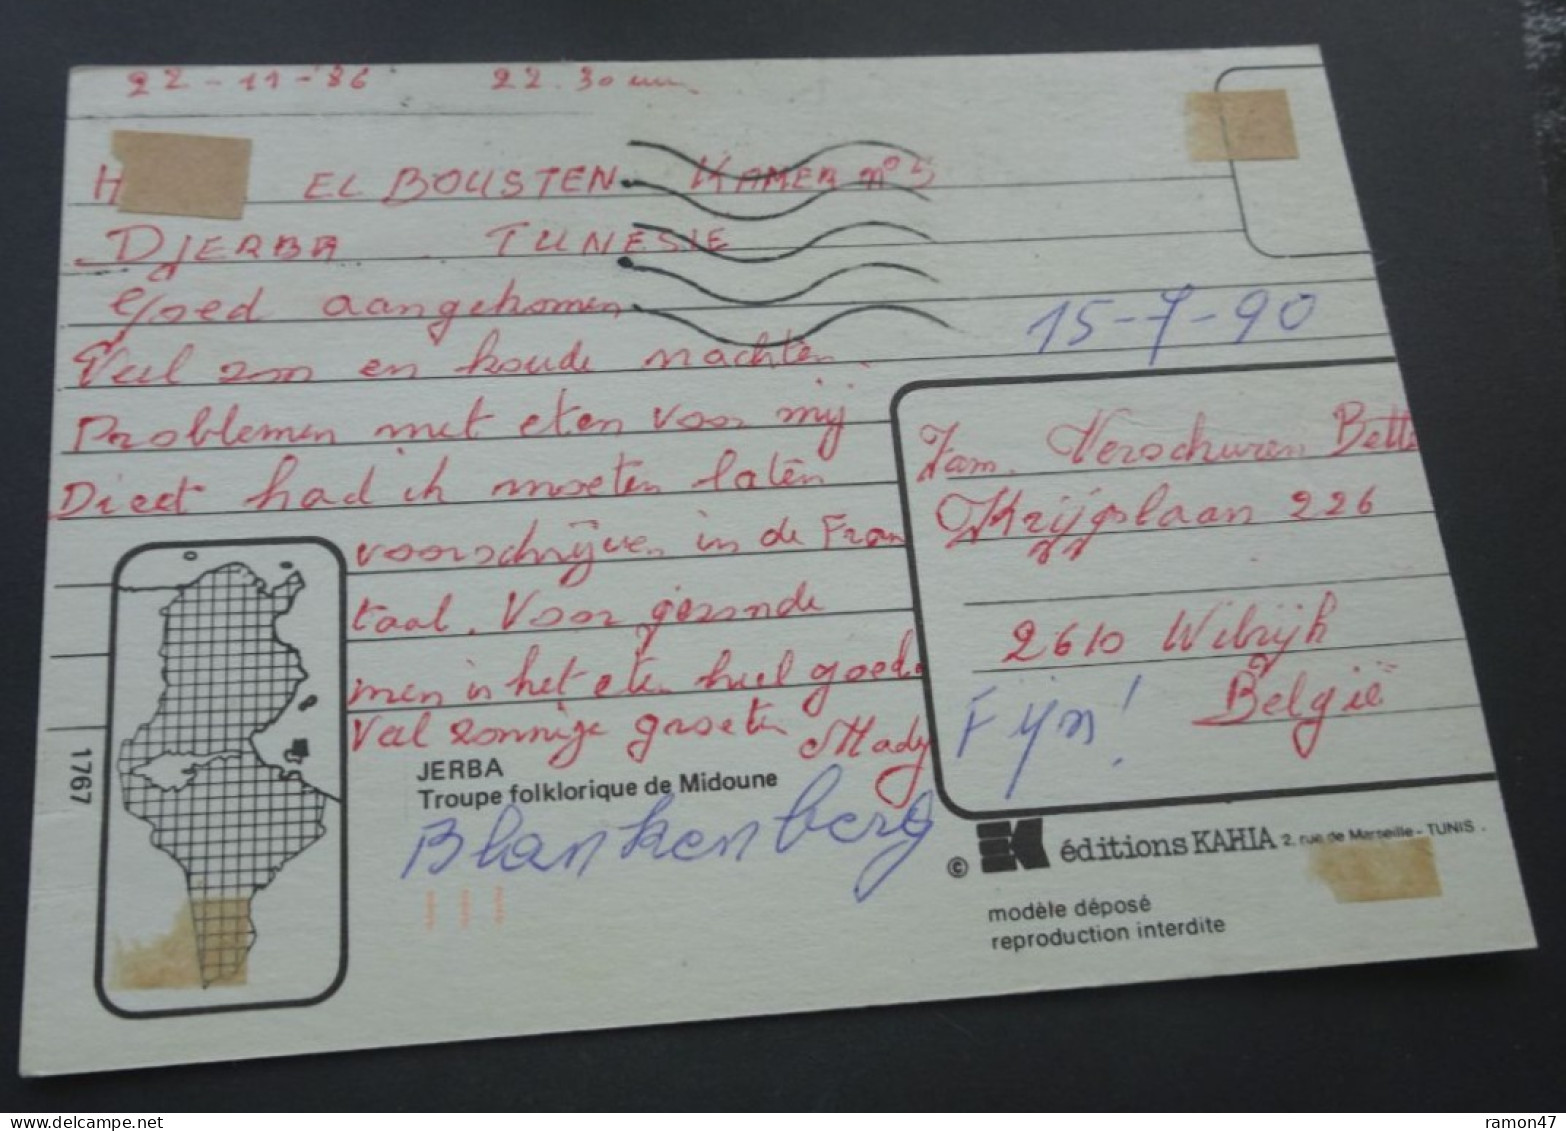 22-11-'86 22.30 uur
EL BOUSTEN KAMER n° 5
DJERBA TUNESIE
Goed aangekomen
Veel zon en koude nachten.
Problemen met eten voor mij
Dieet had ik moeten laten
voorschrijven in de Fran
taal. Voor gezonde
men is het eten heel goed.
Veel zonnige groeten Mady
15-7-90
Fam. Verschuren Bette
Krijgslaan 226
2610 Wilrijk
België
Fijn!
1767
JERBA
Troupe folklorique de Midoune
Blankenberg
© éditions KAHIA 2, rue de Marseille - TUNIS.
modèle déposé
reproduction interdite
www.delcampe.net
ramon47